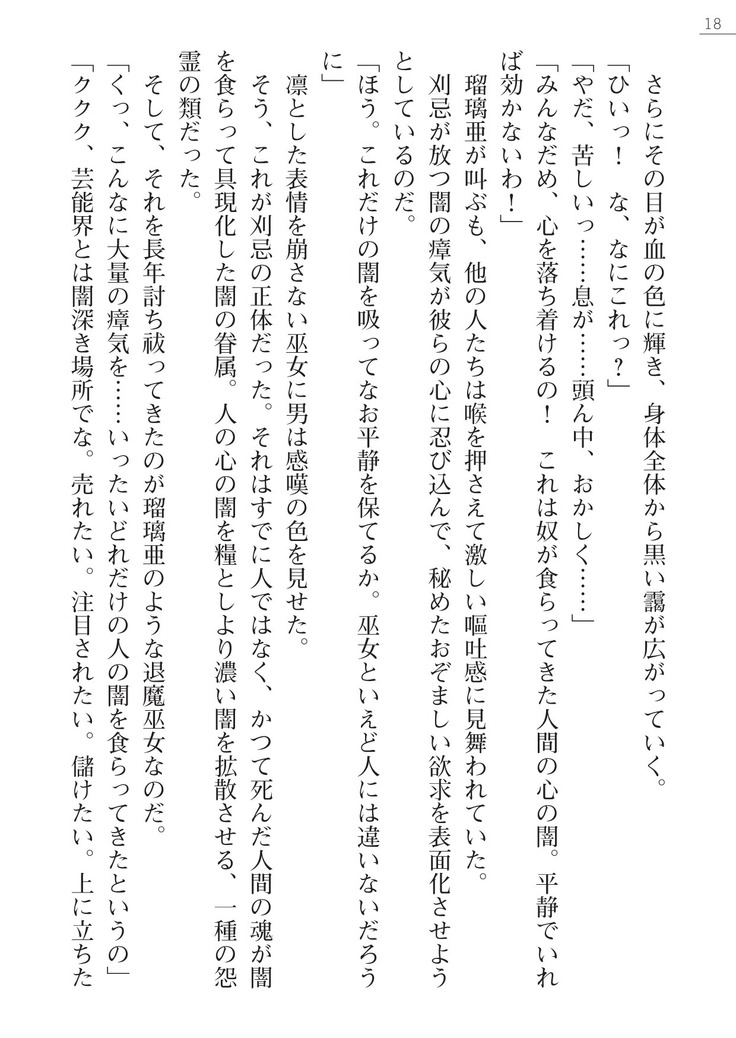 18
　さらにその目が血の色に輝き、身体全体から黒い靄が広がっていく。
「ひいっ！　な、なにこれっ？」
「やだ、苦しいっ……息が……頭ん中、おかしく……」
「みんなだめ、心を落ち着けるの！　これは奴が食らってきた人間の心の闇。平静でいれ
ば効かないわ！」
　瑠璃亜が叫ぶも、他の人たちは喉を押さえて激しい嘔吐感に見舞われていた。
　刈忌が放つ闇の瘴気が彼らの心に忍び込んで、秘めたおぞましい欲求を表面化させよう
としているのだ。
「ほう。これだけの闇を吸ってなお平静を保てるか。巫女といえど人には違いないだろう
に」
　凛とした表情を崩さない巫女に男は感嘆の色を見せた。
　そう、これが刈忌の正体だった。それはすでに人ではなく、かつて死んだ人間の魂が闇
を食らって具現化した闇の眷属。人の心の闇を糧としより濃い闇を拡散させる、一種の怨
霊の類だった。
　そして、それを長年討ち祓ってきたのが瑠璃亜のような退魔巫女なのだ。
「くっ、こんなに大量の瘴気を……いったいどれだけの人の闇を食らってきたというの」
「ククク、芸能界とは闇深き場所でな。売れたい。注目されたい。儲けたい。上に立ちた